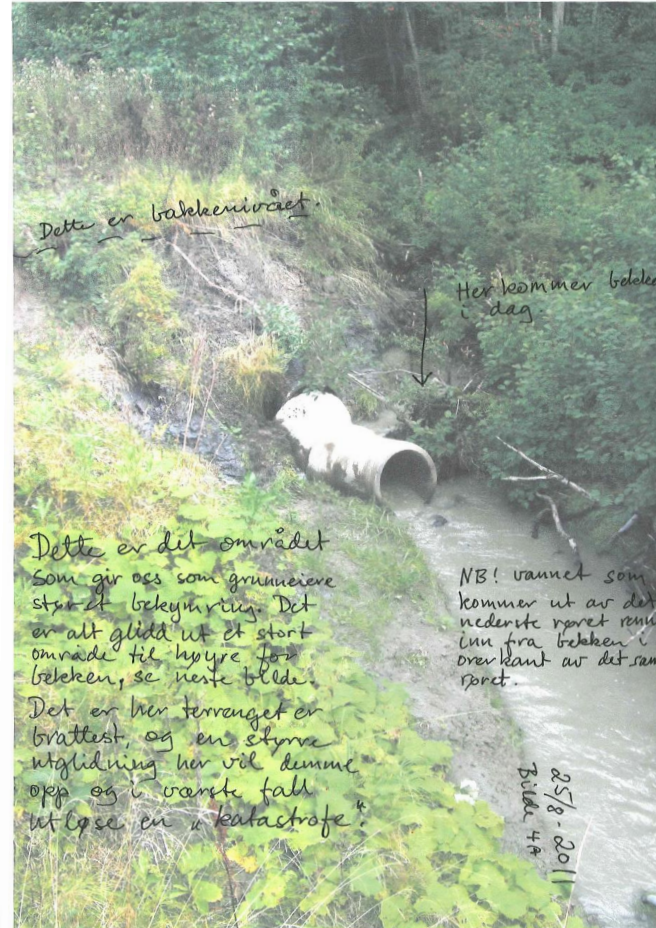 Dette er bakkenivået.
Her kommer bekke
i dag
Dette er det området
som gir oss som grunneiere
størst bekymring. Det
er alt glidd ut et stort
område til høyre for
bekken, se neste bilde.
Det er her terrenget er
brattest, og en større
utglidning her vil demme
opp og i værste fall
utløse en "katastrofe".
NB! vannet som
kommer ut av det
nederste røret renn
inn fra bekken i
overkant av det sam
røret.
25/8. 2011
Bilde 4A